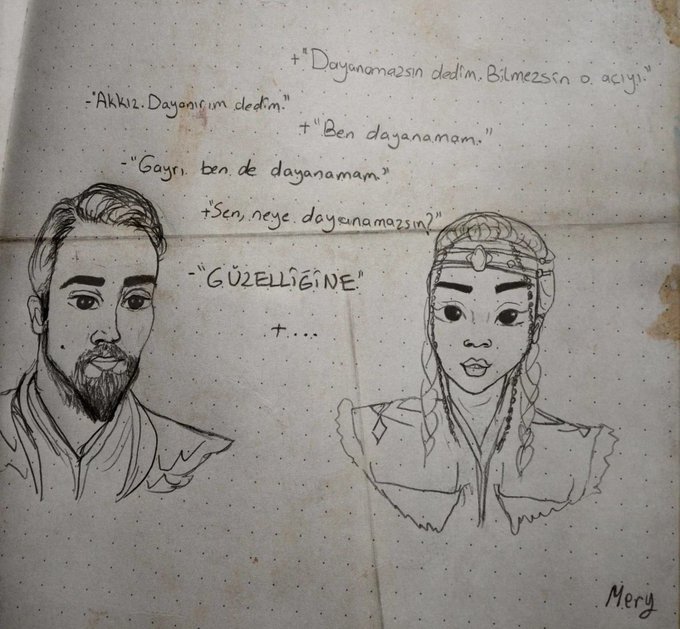 +"Dayanamazsın dedim. Bilmezsin o acıyı."
-"Akkız. Dayanırım dedim."
+"Ben dayanamam."
-"Gayrı ben de dayanamam."
+"Sen, neye dayanamazsın?"
-"GÜZELLİĞİNE"
+...
Mery